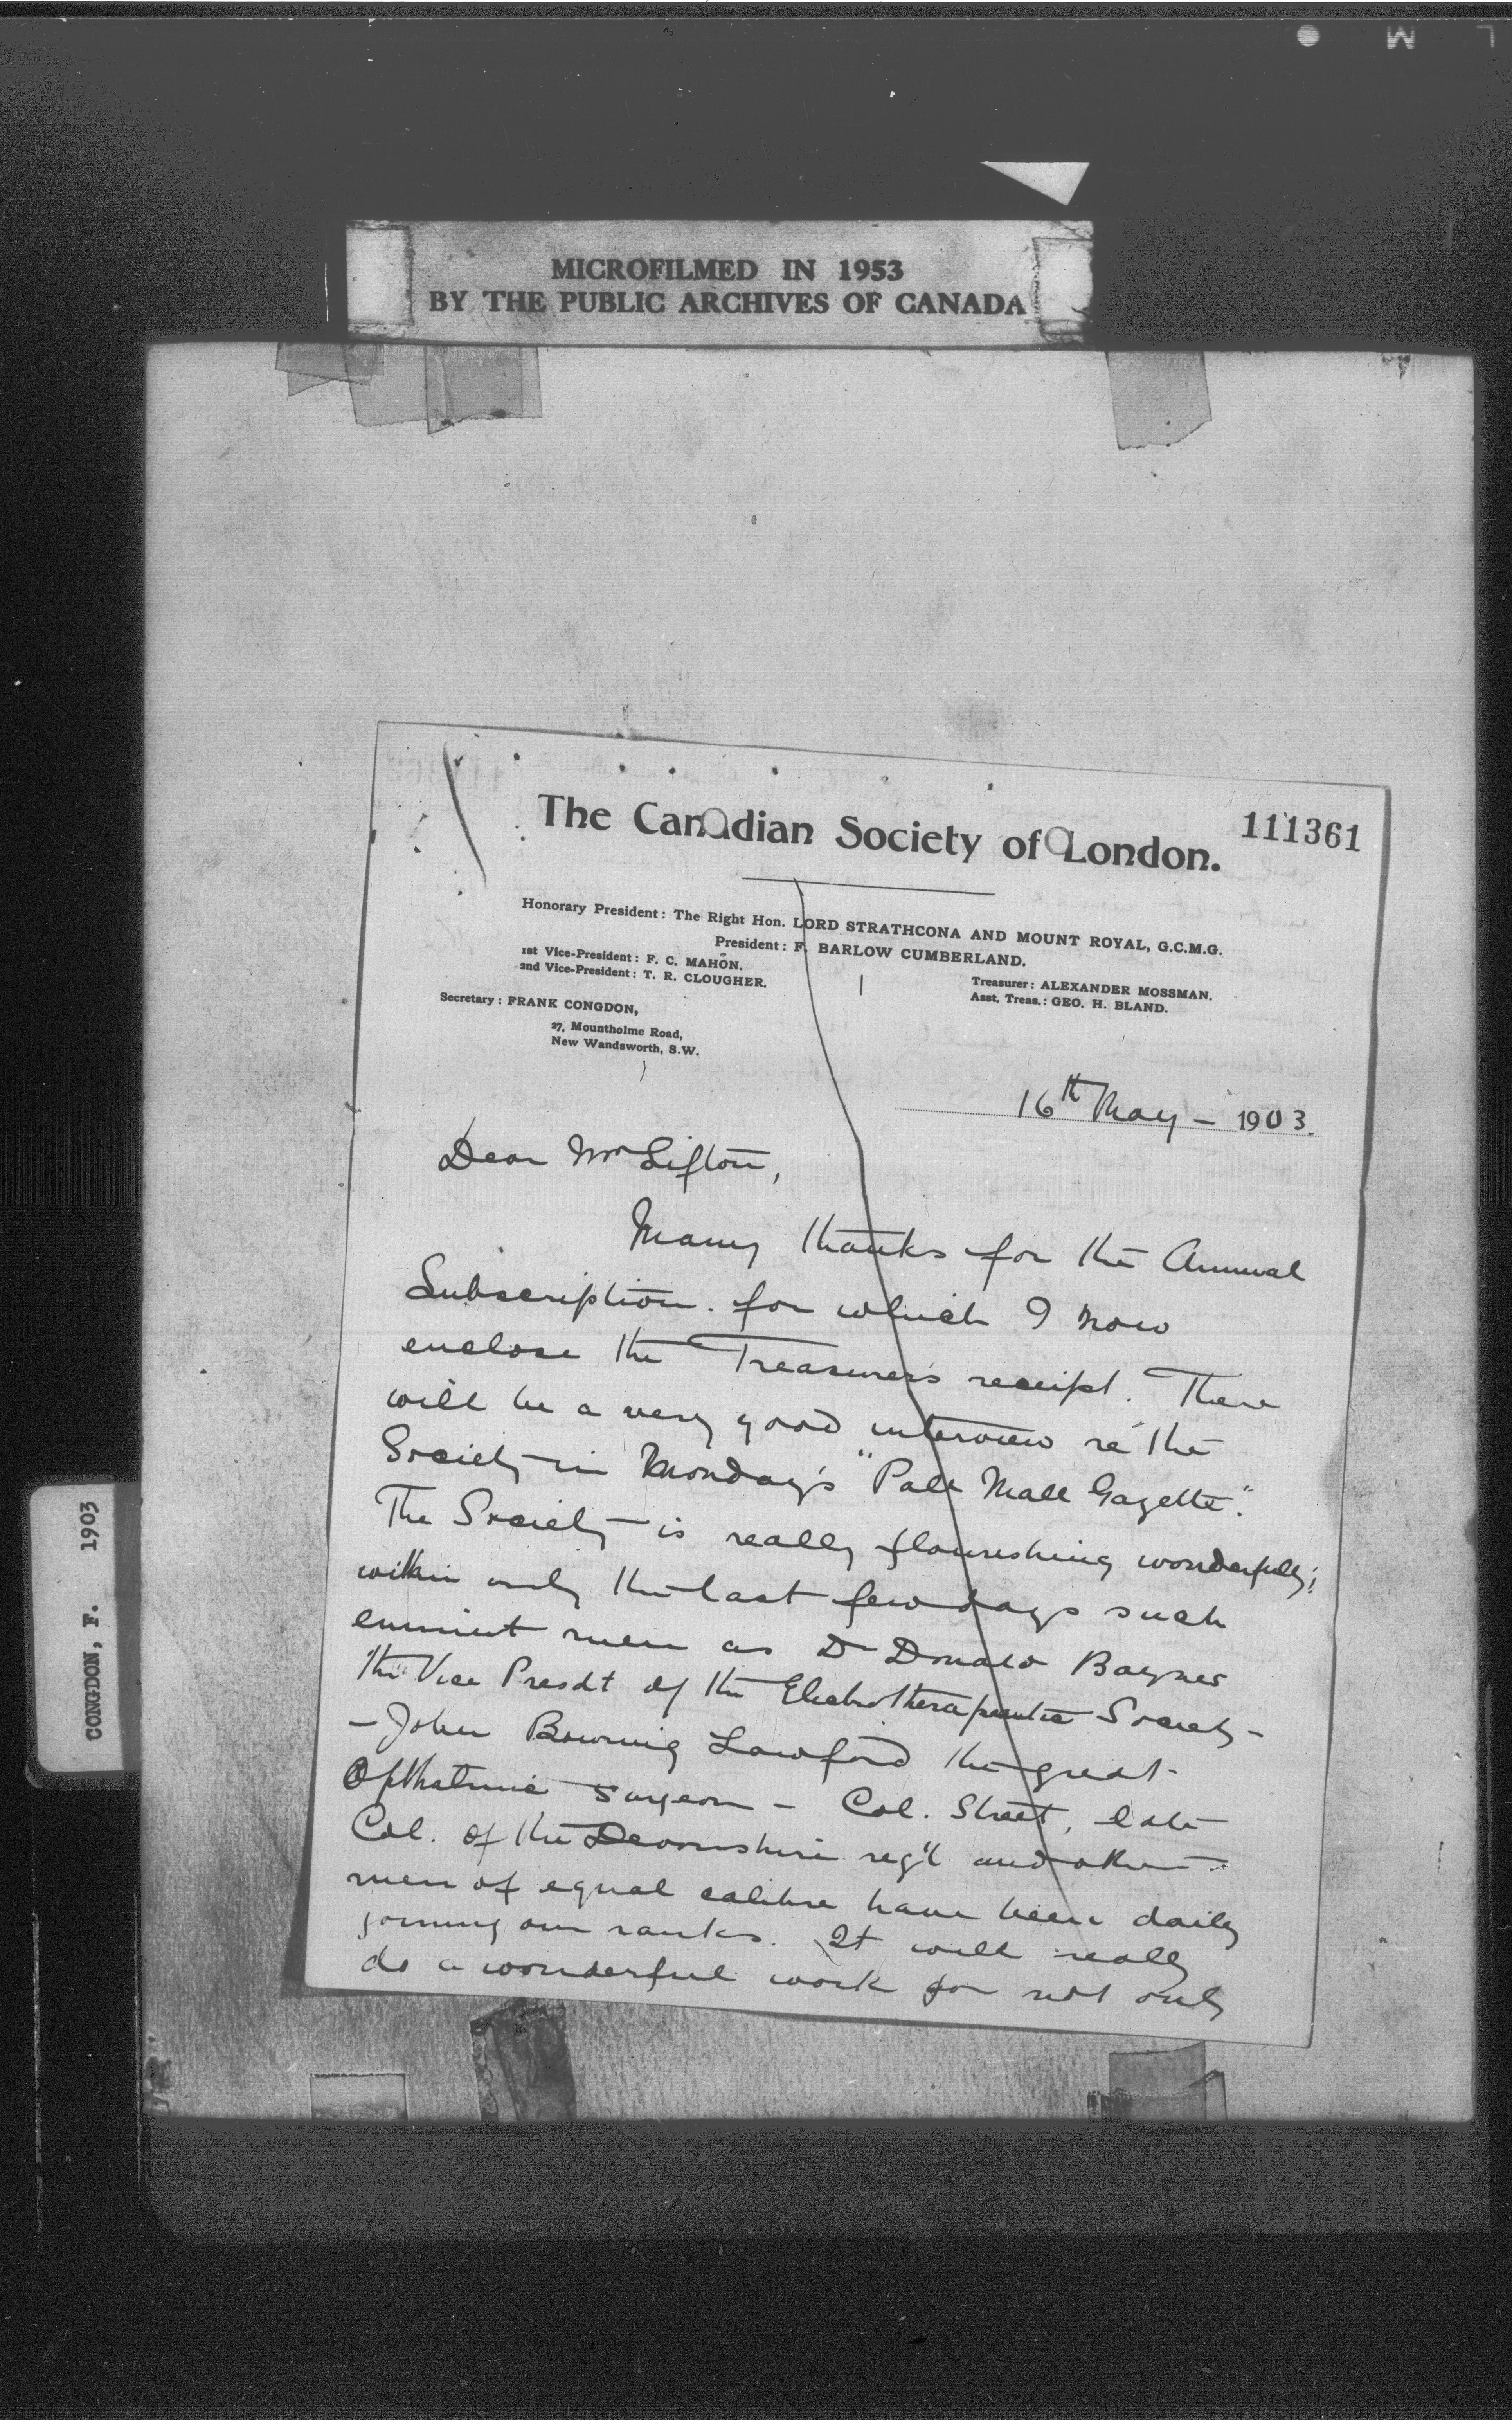 L M
MICROFILMED IN 1953
BY THE PUBLIC ARCHIVES OF CANADA
CONGDON, F. 1903
111361
The Canadian Society of London.
Honorary President: The Right Hon. LORD STRATHCONA AND MOUNT ROYAL, G.C.M.G.
President: F. BARLOW CUMBERLAND.
1st Vice-President: F. C. MAHON.
2nd Vice-President: T. R. CLOUGHER.
Treasurer: ALEXANDER MOSSMAN.
Asst. Treas.: GEO. H. BLAND.
Secretary: FRANK CONGDON,
27, Mountholme Road,
New Wandsworth, S.W.
16th May - 1903.
Dear Mr Sifton,
Many thanks for the Annual
Subscription. for which I now
enclose the Treasurer's receipt. There
will be a very good interview re the
Society in Monday's "Pall Mall Gazette".
The Society is really flourishing wonderfully;
within only the last few days such
eminent men as Dr Donald Baynes
the Vice Presdt of the Electrotherapeutic Society -
- John Bowring Lawford the great
Opthalmic surgeon - Col. Street, late
Col. of the Devonshire reg't and other
men of equal calibre have been daily
joining our ranks. It will really
do a wonderful work for not only